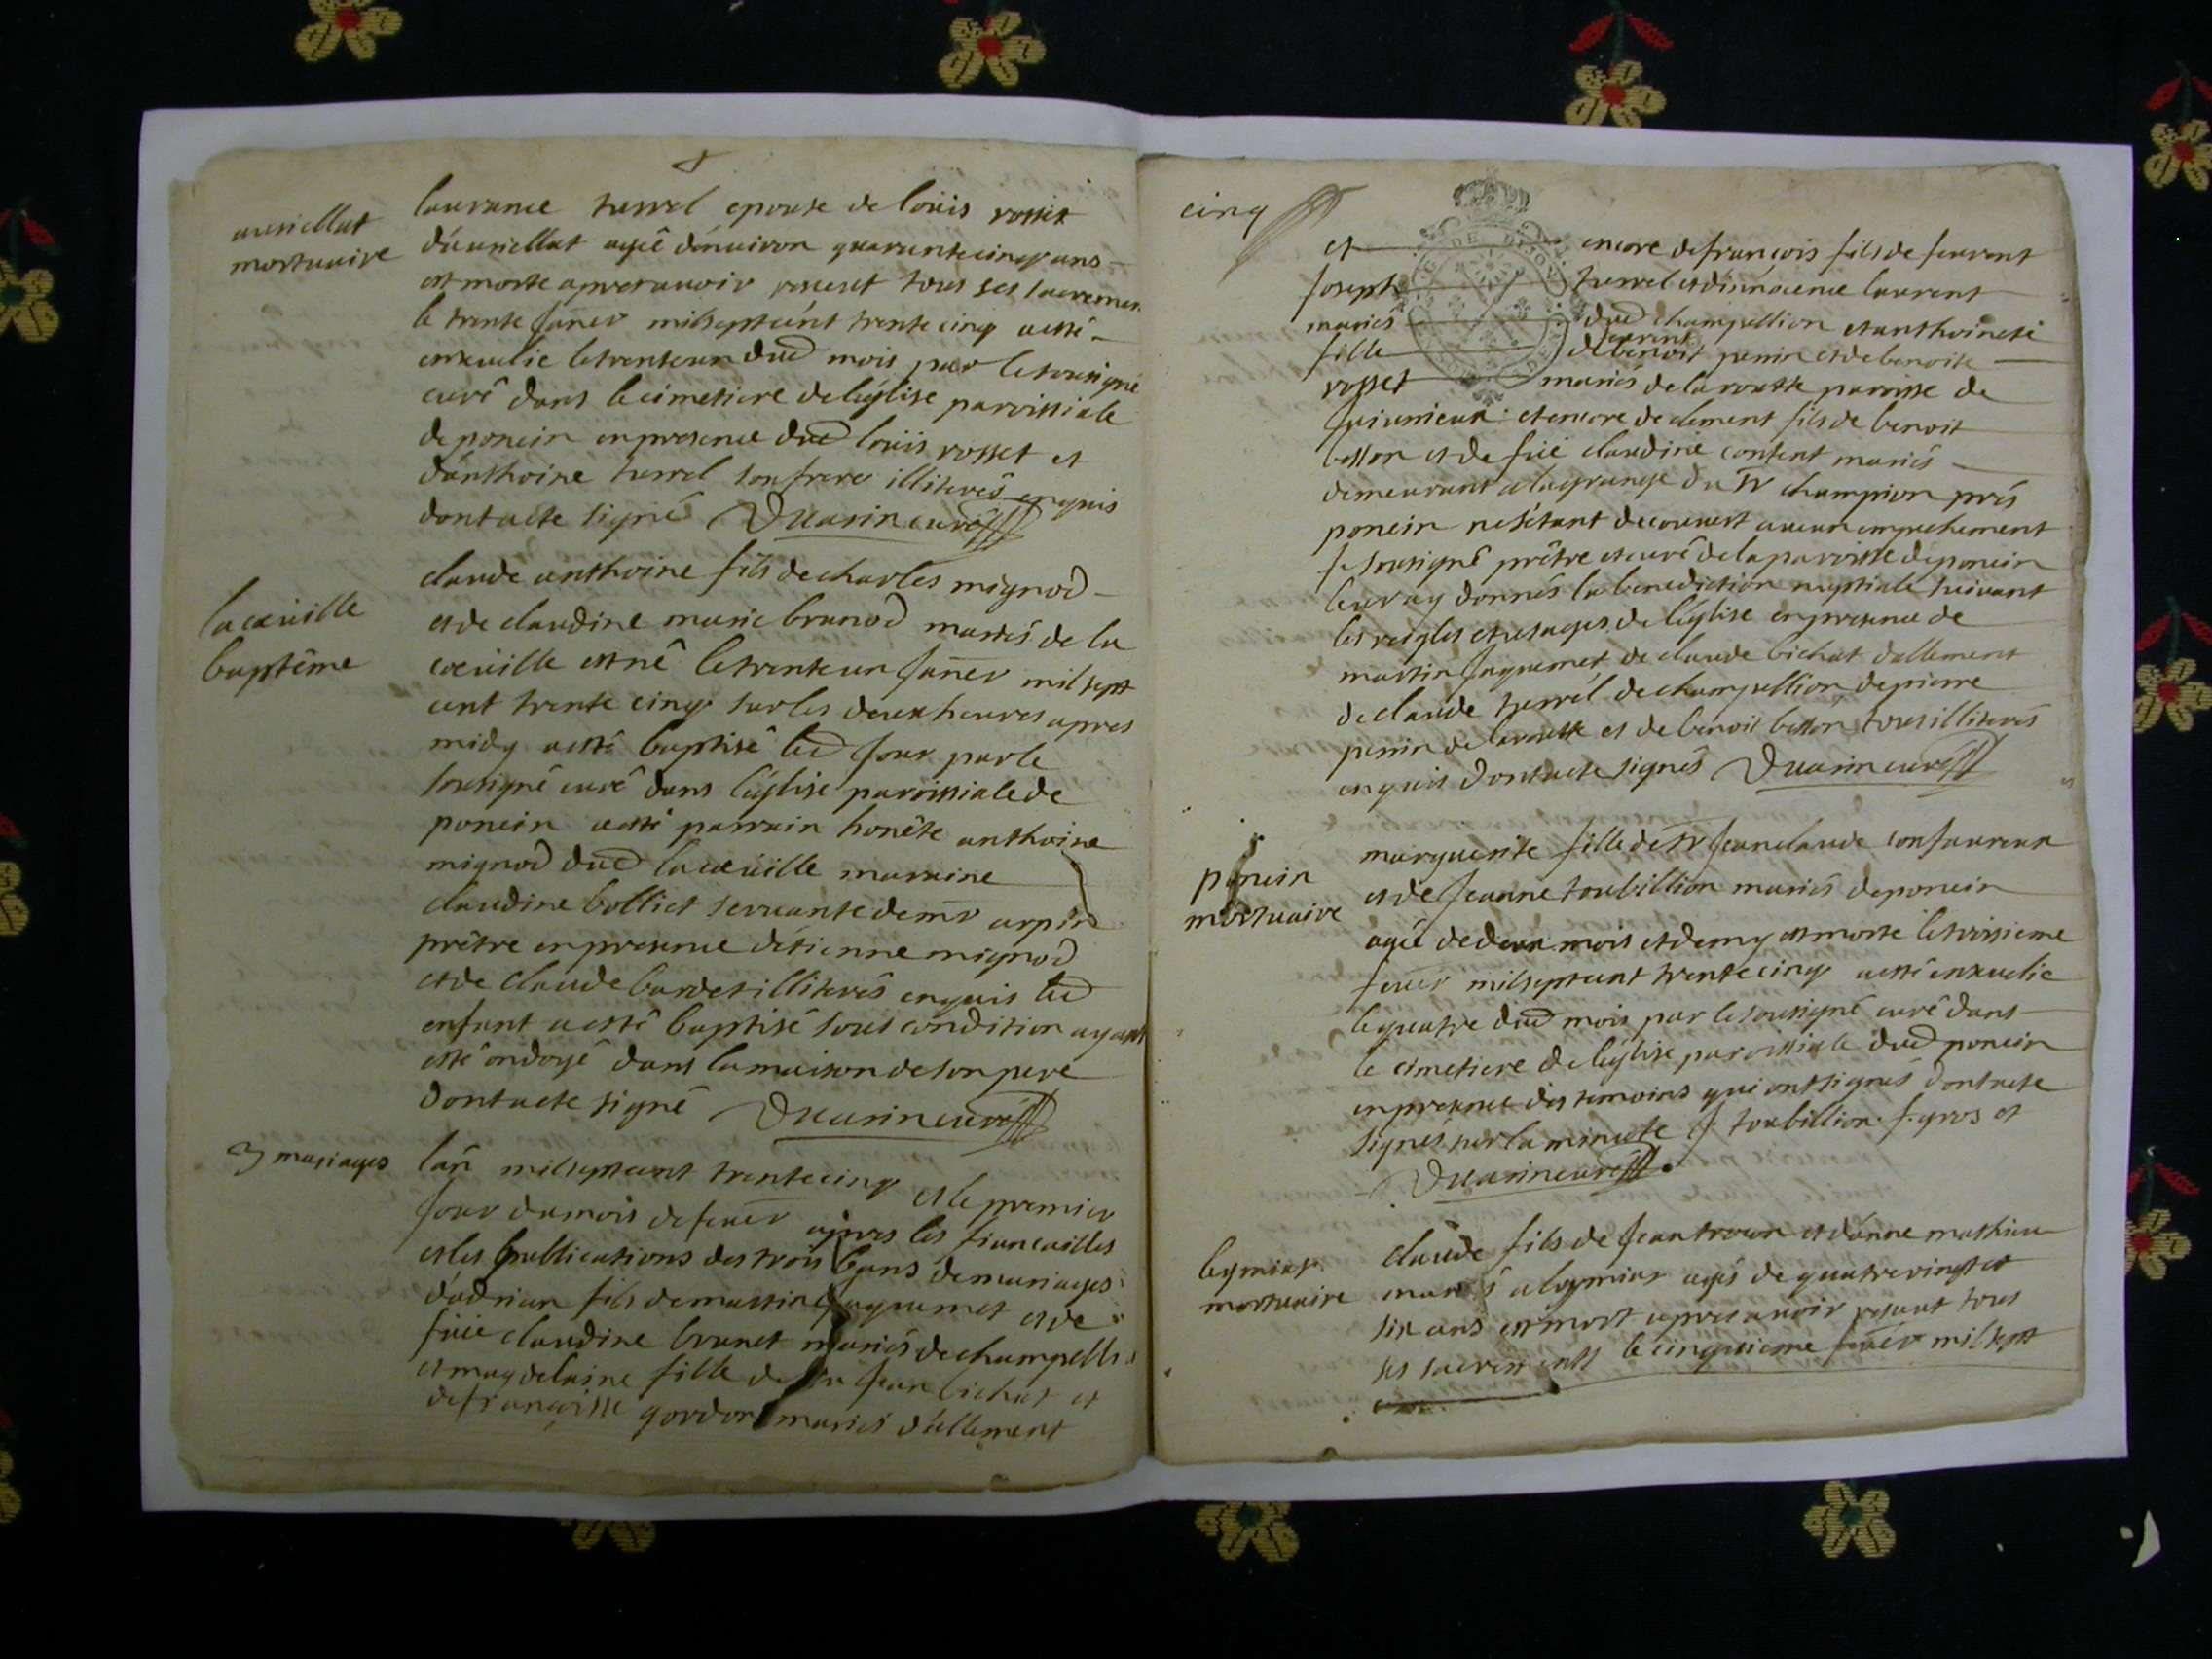 auriellat
mortuaire
laurance terrel epouse de loüis rosset
d'auriellat agée d'enuiron quarante cinq ans
est morte apres auoir receut tous ses sacremens
le trente janer mil sept cént trente cinq a esté
enseuelie le trente un dud mois par le sousigné
curé dans le cimetiere de l'église paroissiale
de poncin en presence dud loüis rosset et
d'anthoine terrel son frere illiterés enquis
dont acte signé curé
la cœuille
baptême
claude anthoine fils de charles mignod
et de claudine marie brunod mariés de la
cœuille est né le trente un janer mil sept
cent trente cinq sur les deux heures apres
midy a esté baptisé led jour par le
sousigné curé dans l'église paroissiale de
poncin a esté parrain honéte anthoine
mignod dud la cœuille marraine
claudine bolliet seruante de mr arpin
prêtre en presence d'étienne mignod
et de claude bardet illiterés enquis led
enfant a esté baptisé sous condition ayant
esté ondoyé dans la maison de son pere
dont acte signé curé
3 mariages
l'añ mil sept cent trente cinq et le premier
jour du mois de feuer apres les fiancailles
et les publications des trois bans de mariages
d'adrian fils de martin jaquemet et de
füe claudine brunet mariés de champell
et magdelaine fille de feu jean bichat et
de françoisse gordon mariés d'allement
cinq
et encore de françois fils de laurent
joseph terrel et d'innocence laurent
mariés dud champellion et anthoinete
fille de benoit perrin et de benoite
rosset mariés de la route paroisse de
jujurieux : et encore de clement fils de benoit
besson et de füe claudine content mariés
demeurant a la grange du sr champion prés
poncin ne s'étant decouuert aucun empechement
je sousigné prêtre et curé de la paroisse de poncin
leur ay donnés la benediction nuptiale suiuant
les reigles et usages de l'église en presence de
martin jaquemet de claude bichat d'allement
de claude terrel de champellion de pierre
perrin de la route et de benoit besson tous illiterés
enquis dont acte signés curé
poncin
mortuaire
marguerite fille de sr jean claude confaureux
et de jeanne toubillion mariés de poncin
agée de deux mois et demy est morte le troisieme
feuer mil sept cent trente cinq a esté enseuelie
le quatre dud mois par le sousigné curé dans
le cimetiere de l'église paroissiale dud poncin
en presence des temoins qui ont signés dont acte
signés sur la minute J toubillion f. gros et
curé
leymiat
mortuaire
claude fils de jean et d'anne mathieu
mariés a leymiat agés de quatre vingt et
six ans est mort apres auoir receut tous
ses sacremens le cinquieme feuer mil sept